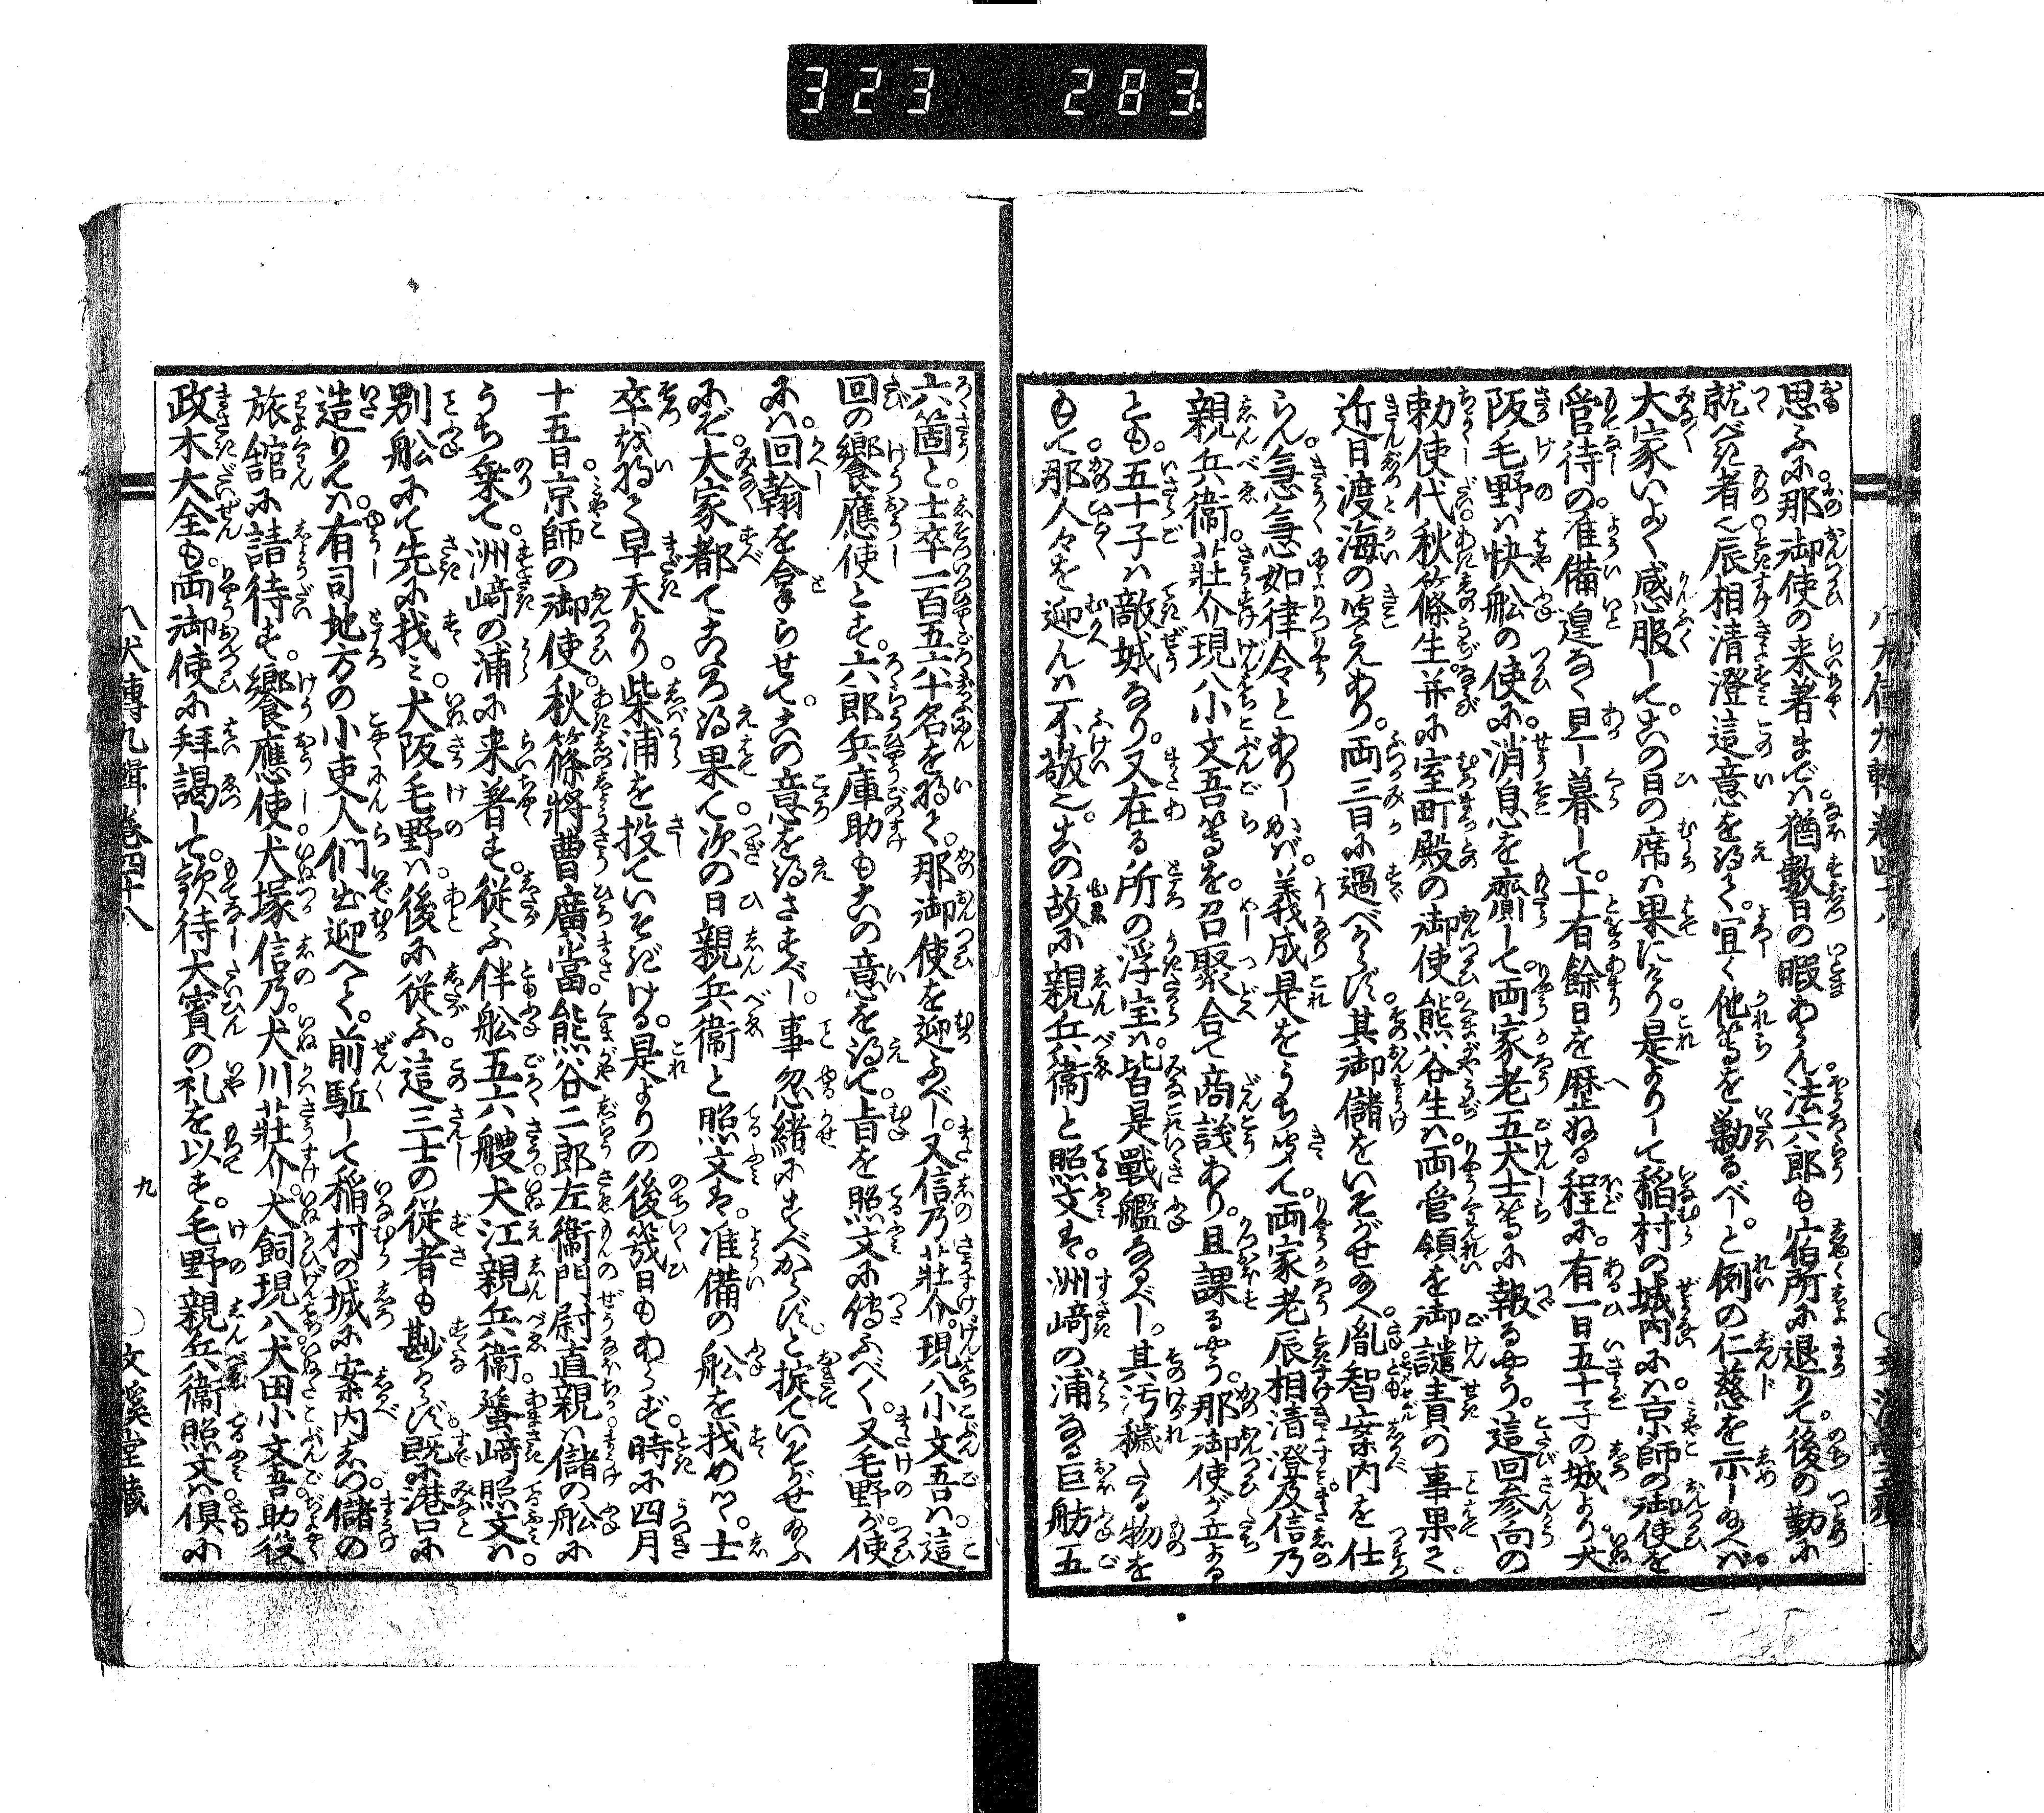 323 283
思ふに那御使の来着までは猶數日の暇あらん法六郎も宿所に退りて後の勤に
就べき者也辰相清澄這意を得て宜く他等を勸るべしと例の仁慈を示し給へば
大家いよゝ感服してこの日の席は果にけり是よりして稲村の城内には京師の御使を
管待の准備遑なく旦し暮して十有餘日を歴ぬる程に有一日五十子の城より犬
阪毛野は快舩の使に消息を齎して両家老五犬士等に報るやう這回参向の
勅使代秋篠生并に室町殿の御使熊谷生は両管領を御譴責の事果て
近日渡海の聞えあり両三日に過べからず其御儲をいそがせ給へ胤智案内を仕
らん急急如律令とありしかば義成是をうち聞て両家老辰相清澄及信乃
親兵衞莊介現八小文吾等を召聚合て商議あり且課るやう那御使が立よる
とも五十子は敵城なり又在る所の浮宝は皆是戰艦なるべし其汚穢たる物を
もて那人々を迎んは不敬也この故に親兵衞と照文は洲﨑の浦なる巨舫五
六箇と士卒一百五六十名を将て那御使を迎ふべし又信乃莊介現八小文吾は這
回の饗應使とす六郎兵庫助もこの意を得て旨を照文に傳ふべく又毛野が使
には回翰を拿らせてこの意を得さすべし事忽緒にすべからずと掟ていそがせ給ふ
にぞ大家都てこゝろ得果て次の日親兵衞と照文は准備の舩を找めつゝ士
卒を将て早天より柴浦を投ていそぎける是よりの後幾日もあらず時に四月
十五日京師の御使秋篠將曹廣當熊谷二郎左衞門尉直親は儲の舩に
うち乗て洲﨑の浦に来着す従ふ伴舩五六艘犬江親兵衞蜑﨑照文は
別舩にて先に找み犬阪毛野は後に従ふ這三士の従者も尠からず既に港口に
造りては有司地方の小吏人們出迎へて前駈して稲村の城に案内しつ儲の
旅舘に請待す饗應使犬塚信乃犬川莊介犬飼現八犬田小文吾助役
政木大全も両御使に拜謁して欵待大賓の礼を以す毛野親兵衞照文は倶に
八犬傳九輯巻四十八
九
○文溪堂藏